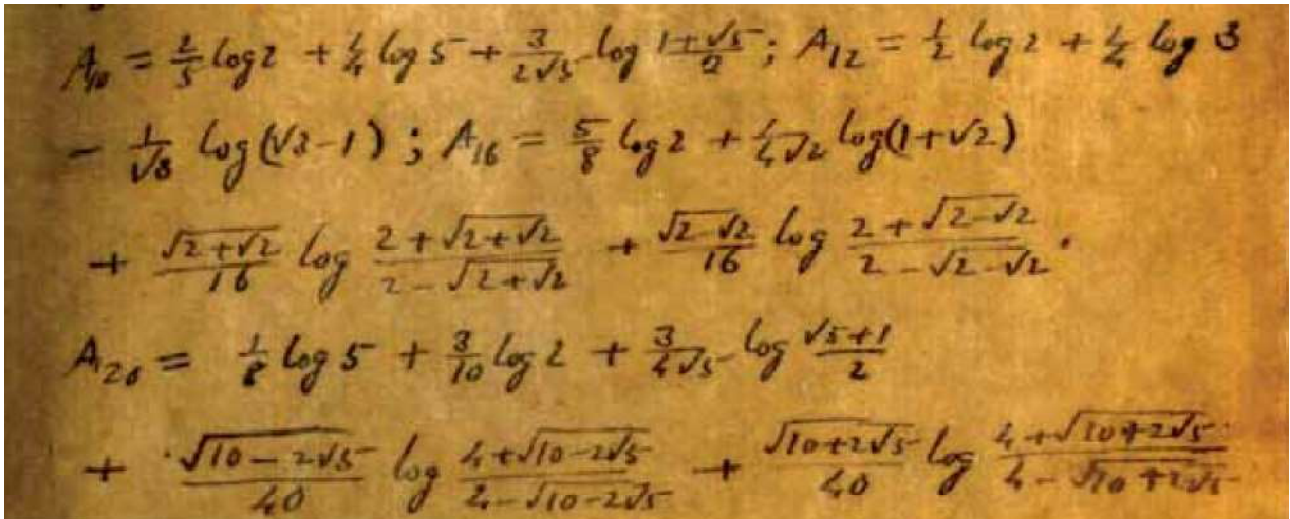 A₁₀ = 2/5 log 2 + 1/4 log 5 + 3/(2√5) log (1+√5)/2 ; A₁₂ = 1/2 log 2 + 1/4 log 3
− 1/√3 log(√3−1) ; A₁₆ = 5/8 log 2 + 1/(4√2) log(1+√2)
+ √(2+√2)/16 log (2+√(2+√2))/(2−√(2+√2)) + √(2−√2)/16 log (2+√(2−√2))/(2−√(2−√2)).
A₂₀ = 1/8 log 5 + 3/10 log 2 + 3/(4√5) log (√5+1)/2
+ √(10−2√5)/40 log (4+√(10−2√5))/(4−√(10−2√5)) + √(10+2√5)/40 log (4+√(10+2√5))/(4−√(10+2√5))